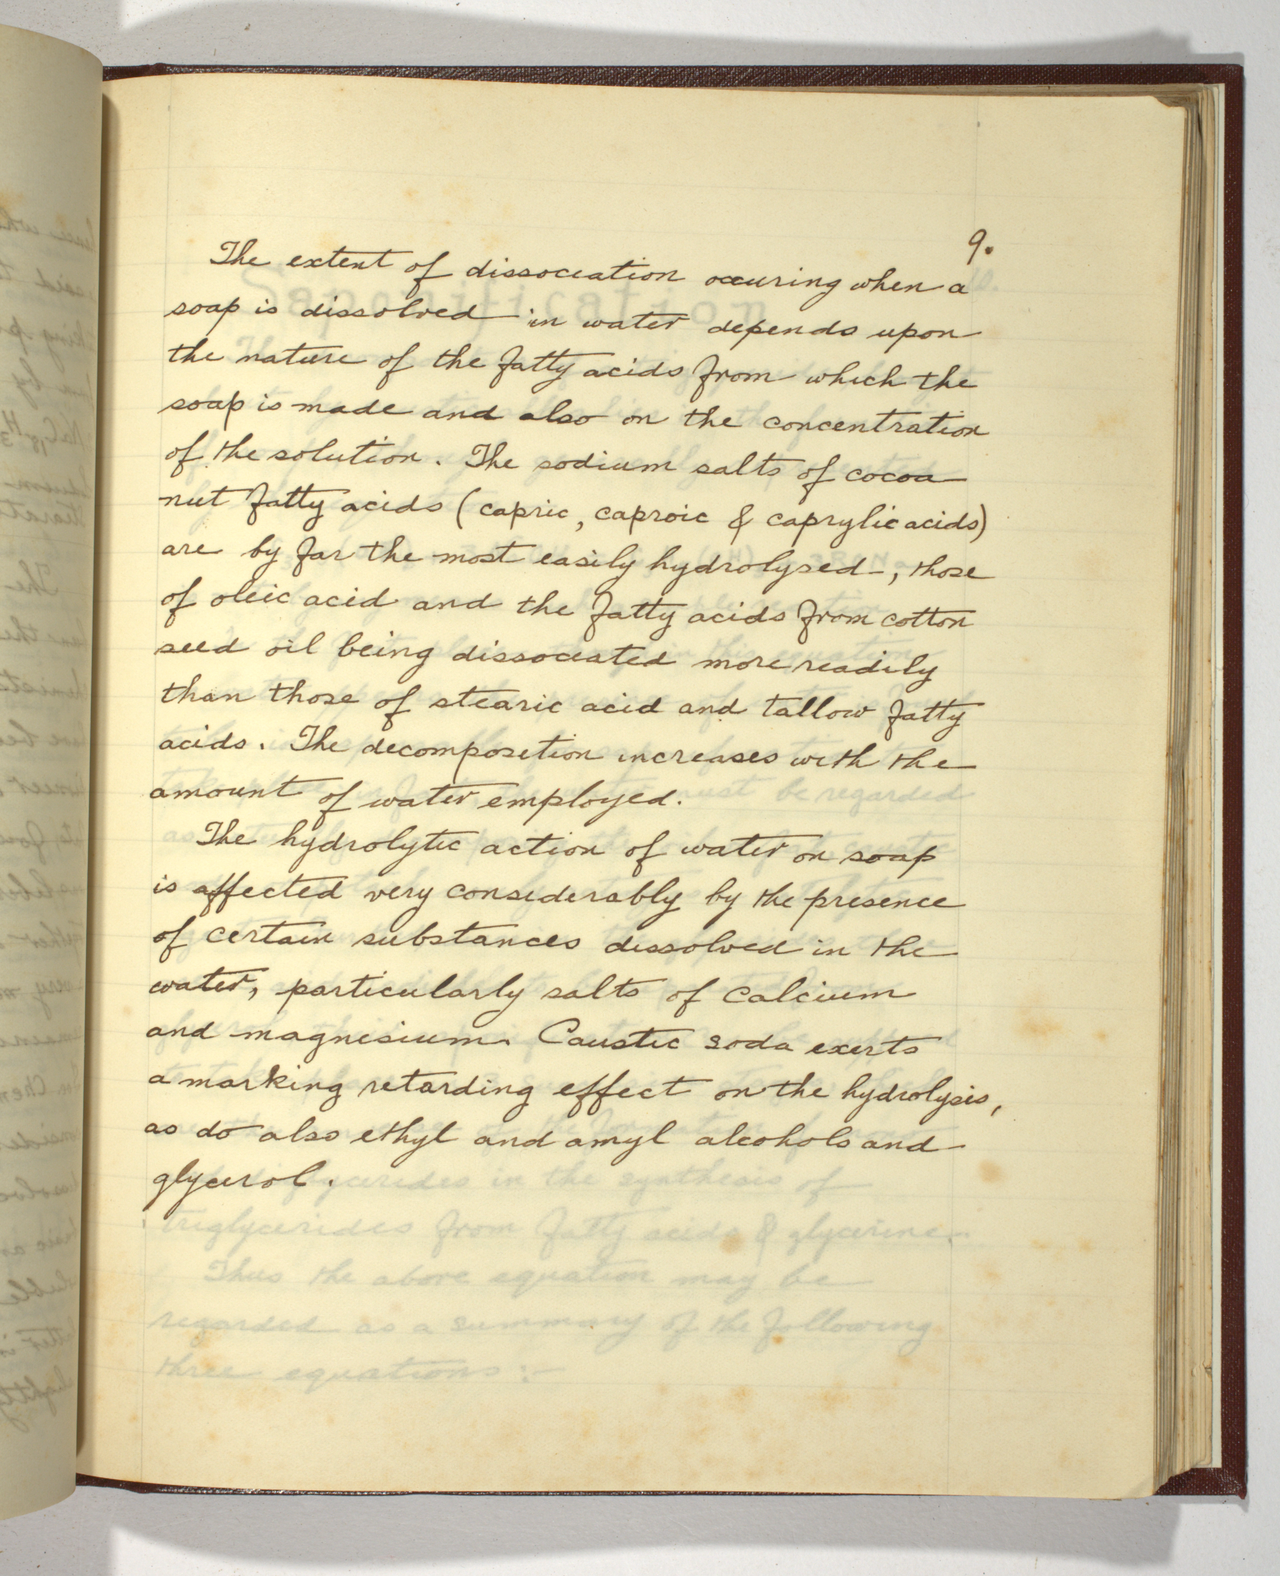 9.
The extent of dissociation occuring when a
soap is dissolved in water depends upon
the nature of the fatty acids from which the
soap is made and also on the concentration
of the solution. The sodium salts of cocoa
nut fatty acids (capric, caproic & caprylic acids)
are by far the most easily hydrolysed, those
of oleic acid and the fatty acids from cotton
seed oil being dissociated more readily
than those of stearic acid and tallow fatty
acids. The decomposition increases with the
amount of water employed.
The hydrolytic action of water on soap
is affected very considerably by the presence
of certain substances dissolved in the
water, particularly salts of calcium
and magnesium. Caustic soda exerts
a marking retarding effect on the hydrolysis,
as do also ethyl and amyl alcohols and
glycerol.
Saponification
must be regarded
glycerides in the synthesis of
triglycerides from fatty acids & glycerine.
Thus the above equation may be
regarded as a summary of the following
three equations:-